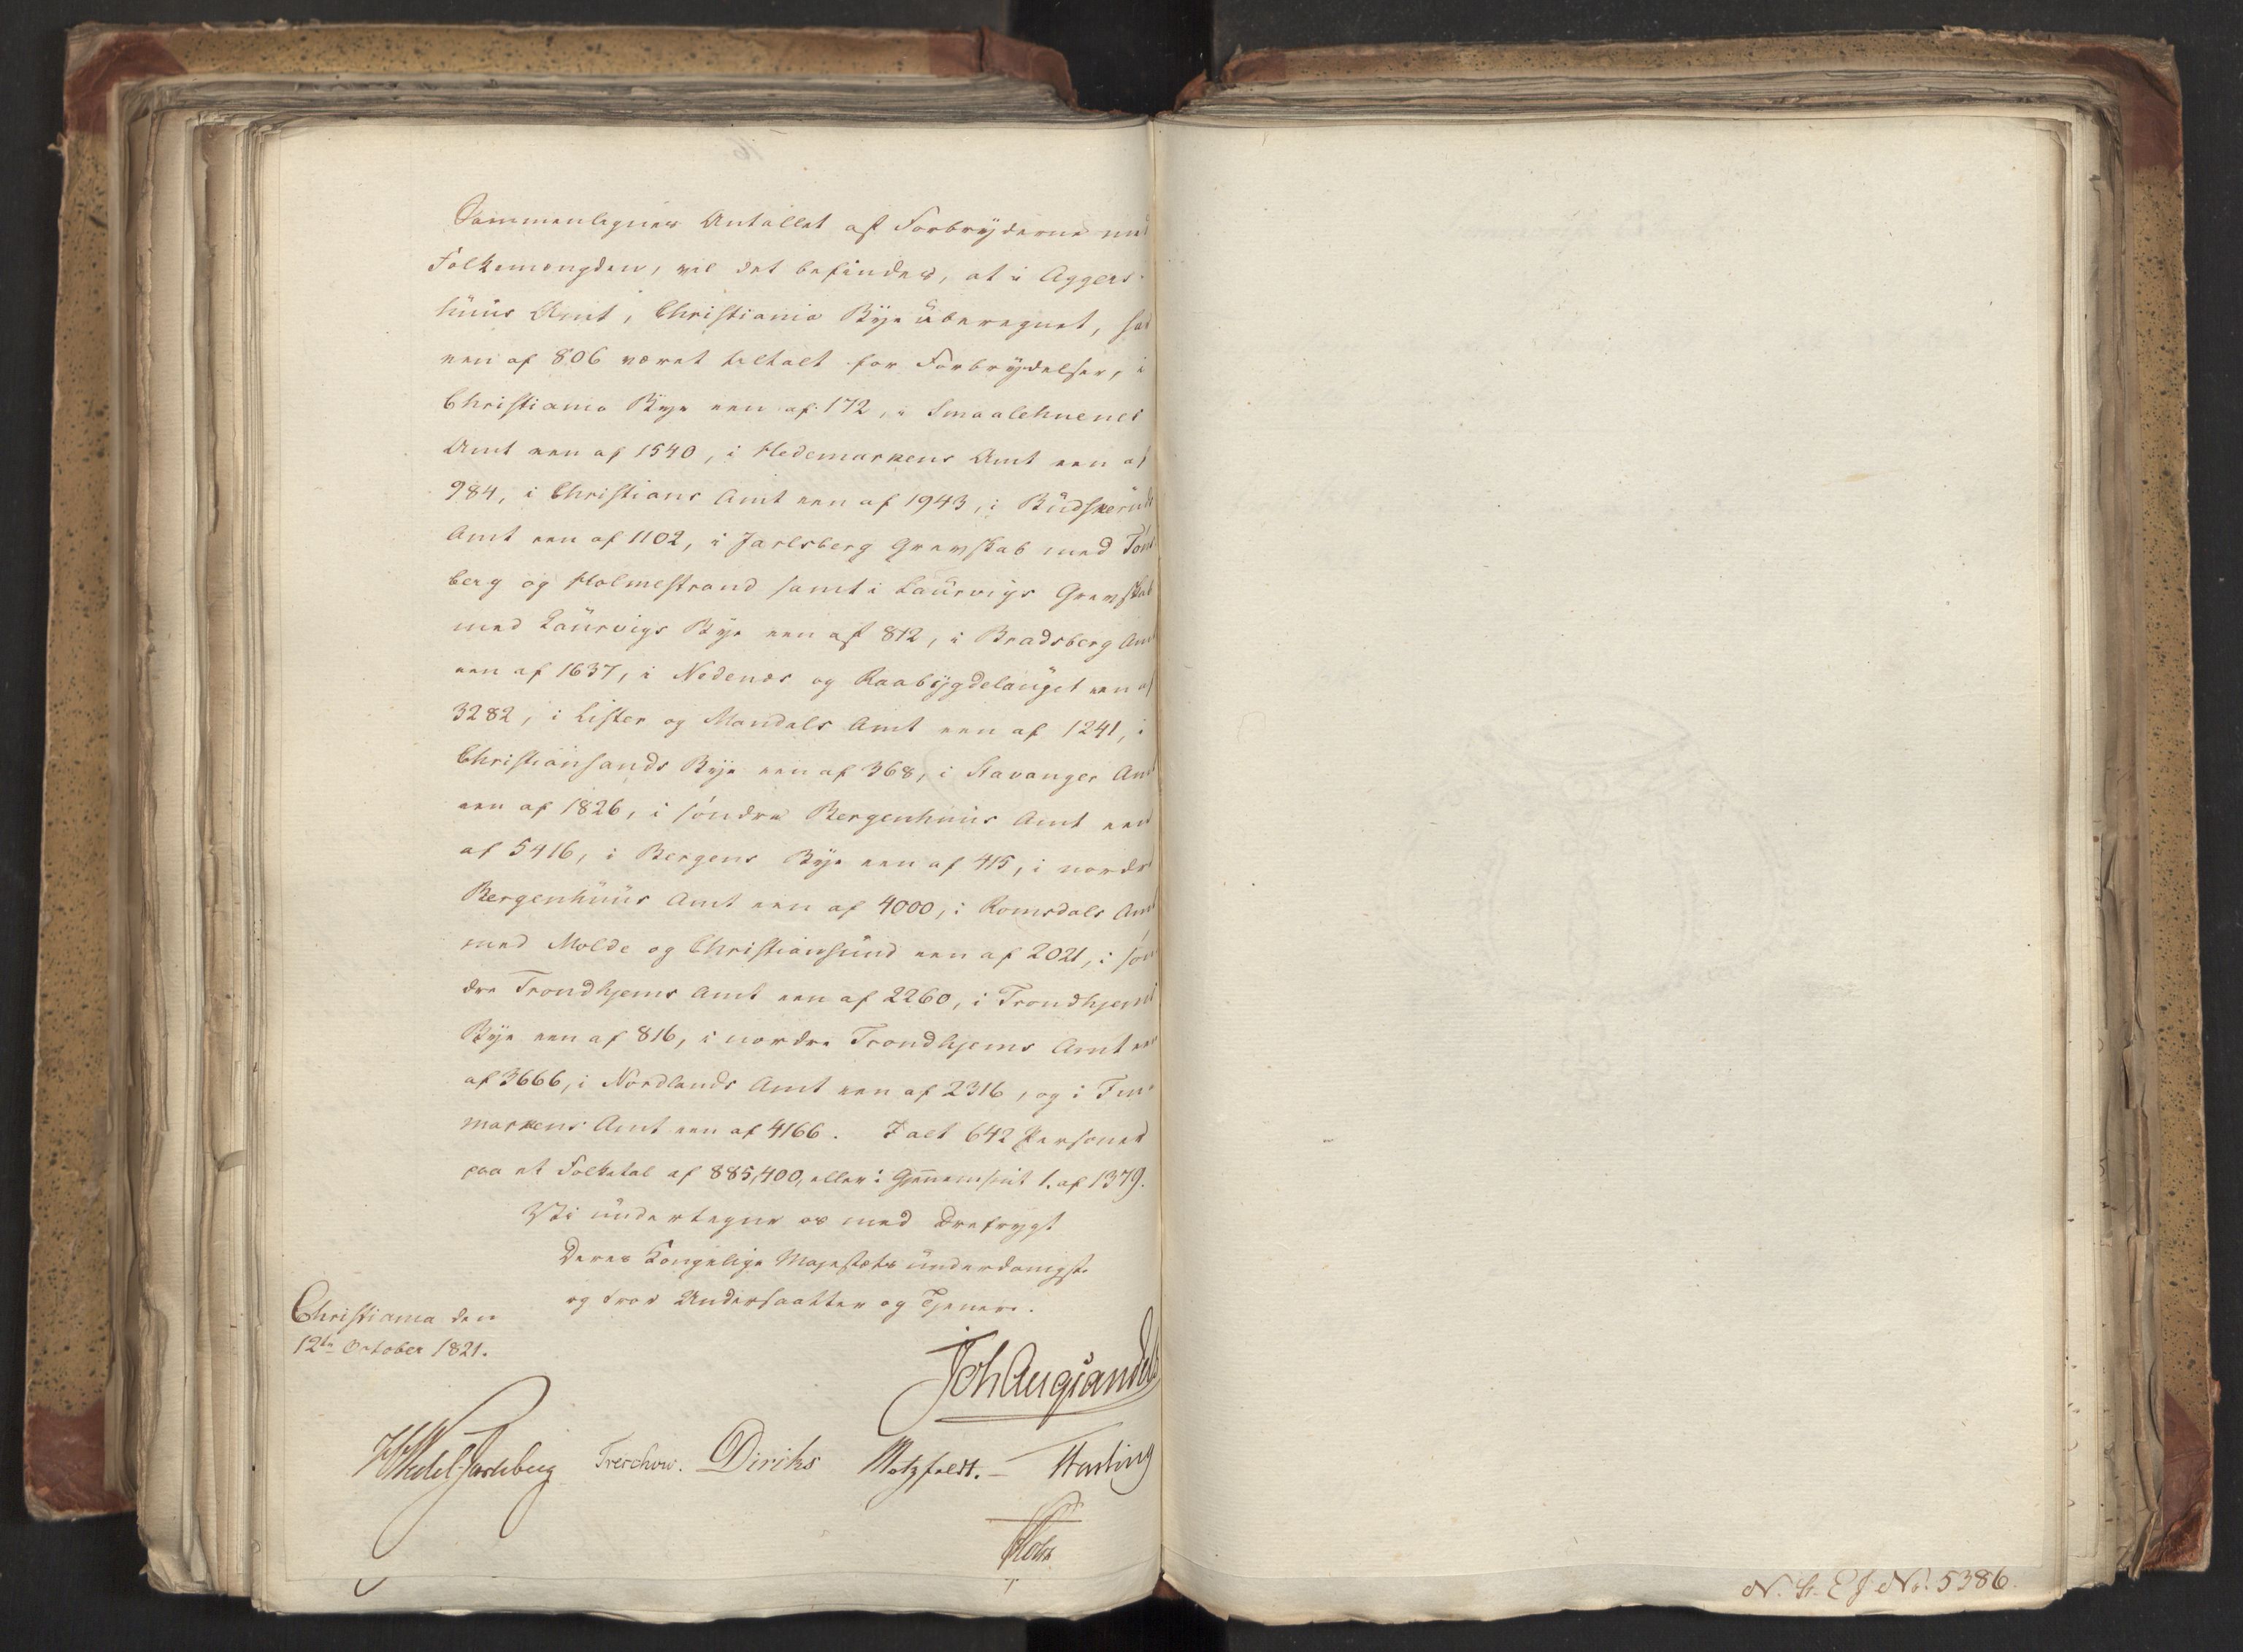 Sammenlignes Antallet af Forbryderne med
Folkemængden, vil det befindes, at i Aggers-
huus Amt, Christiania Bye uberegnet, har
een af 806 været tiltalt for Forbrydelser, i
Christiania Bye een af 172, i Smaalehnenes
Amt een af 1540, i Hedemarkens Amt een af
984, i Christians Amt een af 1943, i Budskeruds
Amt een af 1102, i Jarlsberg Grevskab med Tons-
berg og Holmestrand samt i Laurvigs Grevskab
med Laurvigs Bye een af 812, i Bradsberg Amt
een af 1637, i Nedenæs og Raabygdelauget een af
3282, i Lister og Mandals Amt een af 1241, i
Christiansands Bye een af 368, i Stavanger Amt
een af 1826, i søndre Bergenhuus Amt een
af 5416, i Bergens Bye een af 415, i nordre
Bergenhuus Amt een af 4000, i Romsdals Amt
med Molde og Christiansund een af 2021, i søn-
dre Trondhjems Amt een af 2260, i Trondhjems
Bye een af 816, i nordre Trondhjems Amt een
af 3666, i Nordlands Amt een af 2316, og i Fin-
markens Amt een af 4166. I alt 642 Personer
paa et Folketal af 885,400, eller i Gjennemsnit 1. af 1379.
Vi undertegne os med Ærefrygt
Deres Kongelige Majestæts underdanigste
og troe Undersaatter og Tjenere.
Christiania den
12te October 1821.
Joh Aug Sandels
HWedel Jarlsberg Treschow. Diriks Motzfeldt. Hasting
Holst
N. St. E J No. 5386.